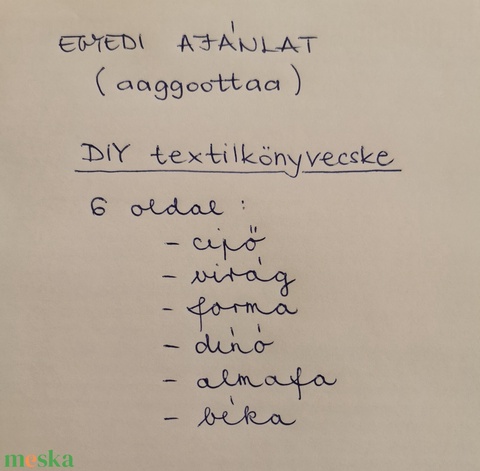 EGYEDI AJÁNLAT
(aaggoottaa)
DiY textilkönyvecske
6 oldal:
- cipő
- virág
- forma
- dínó
- almafa
- béka
meska